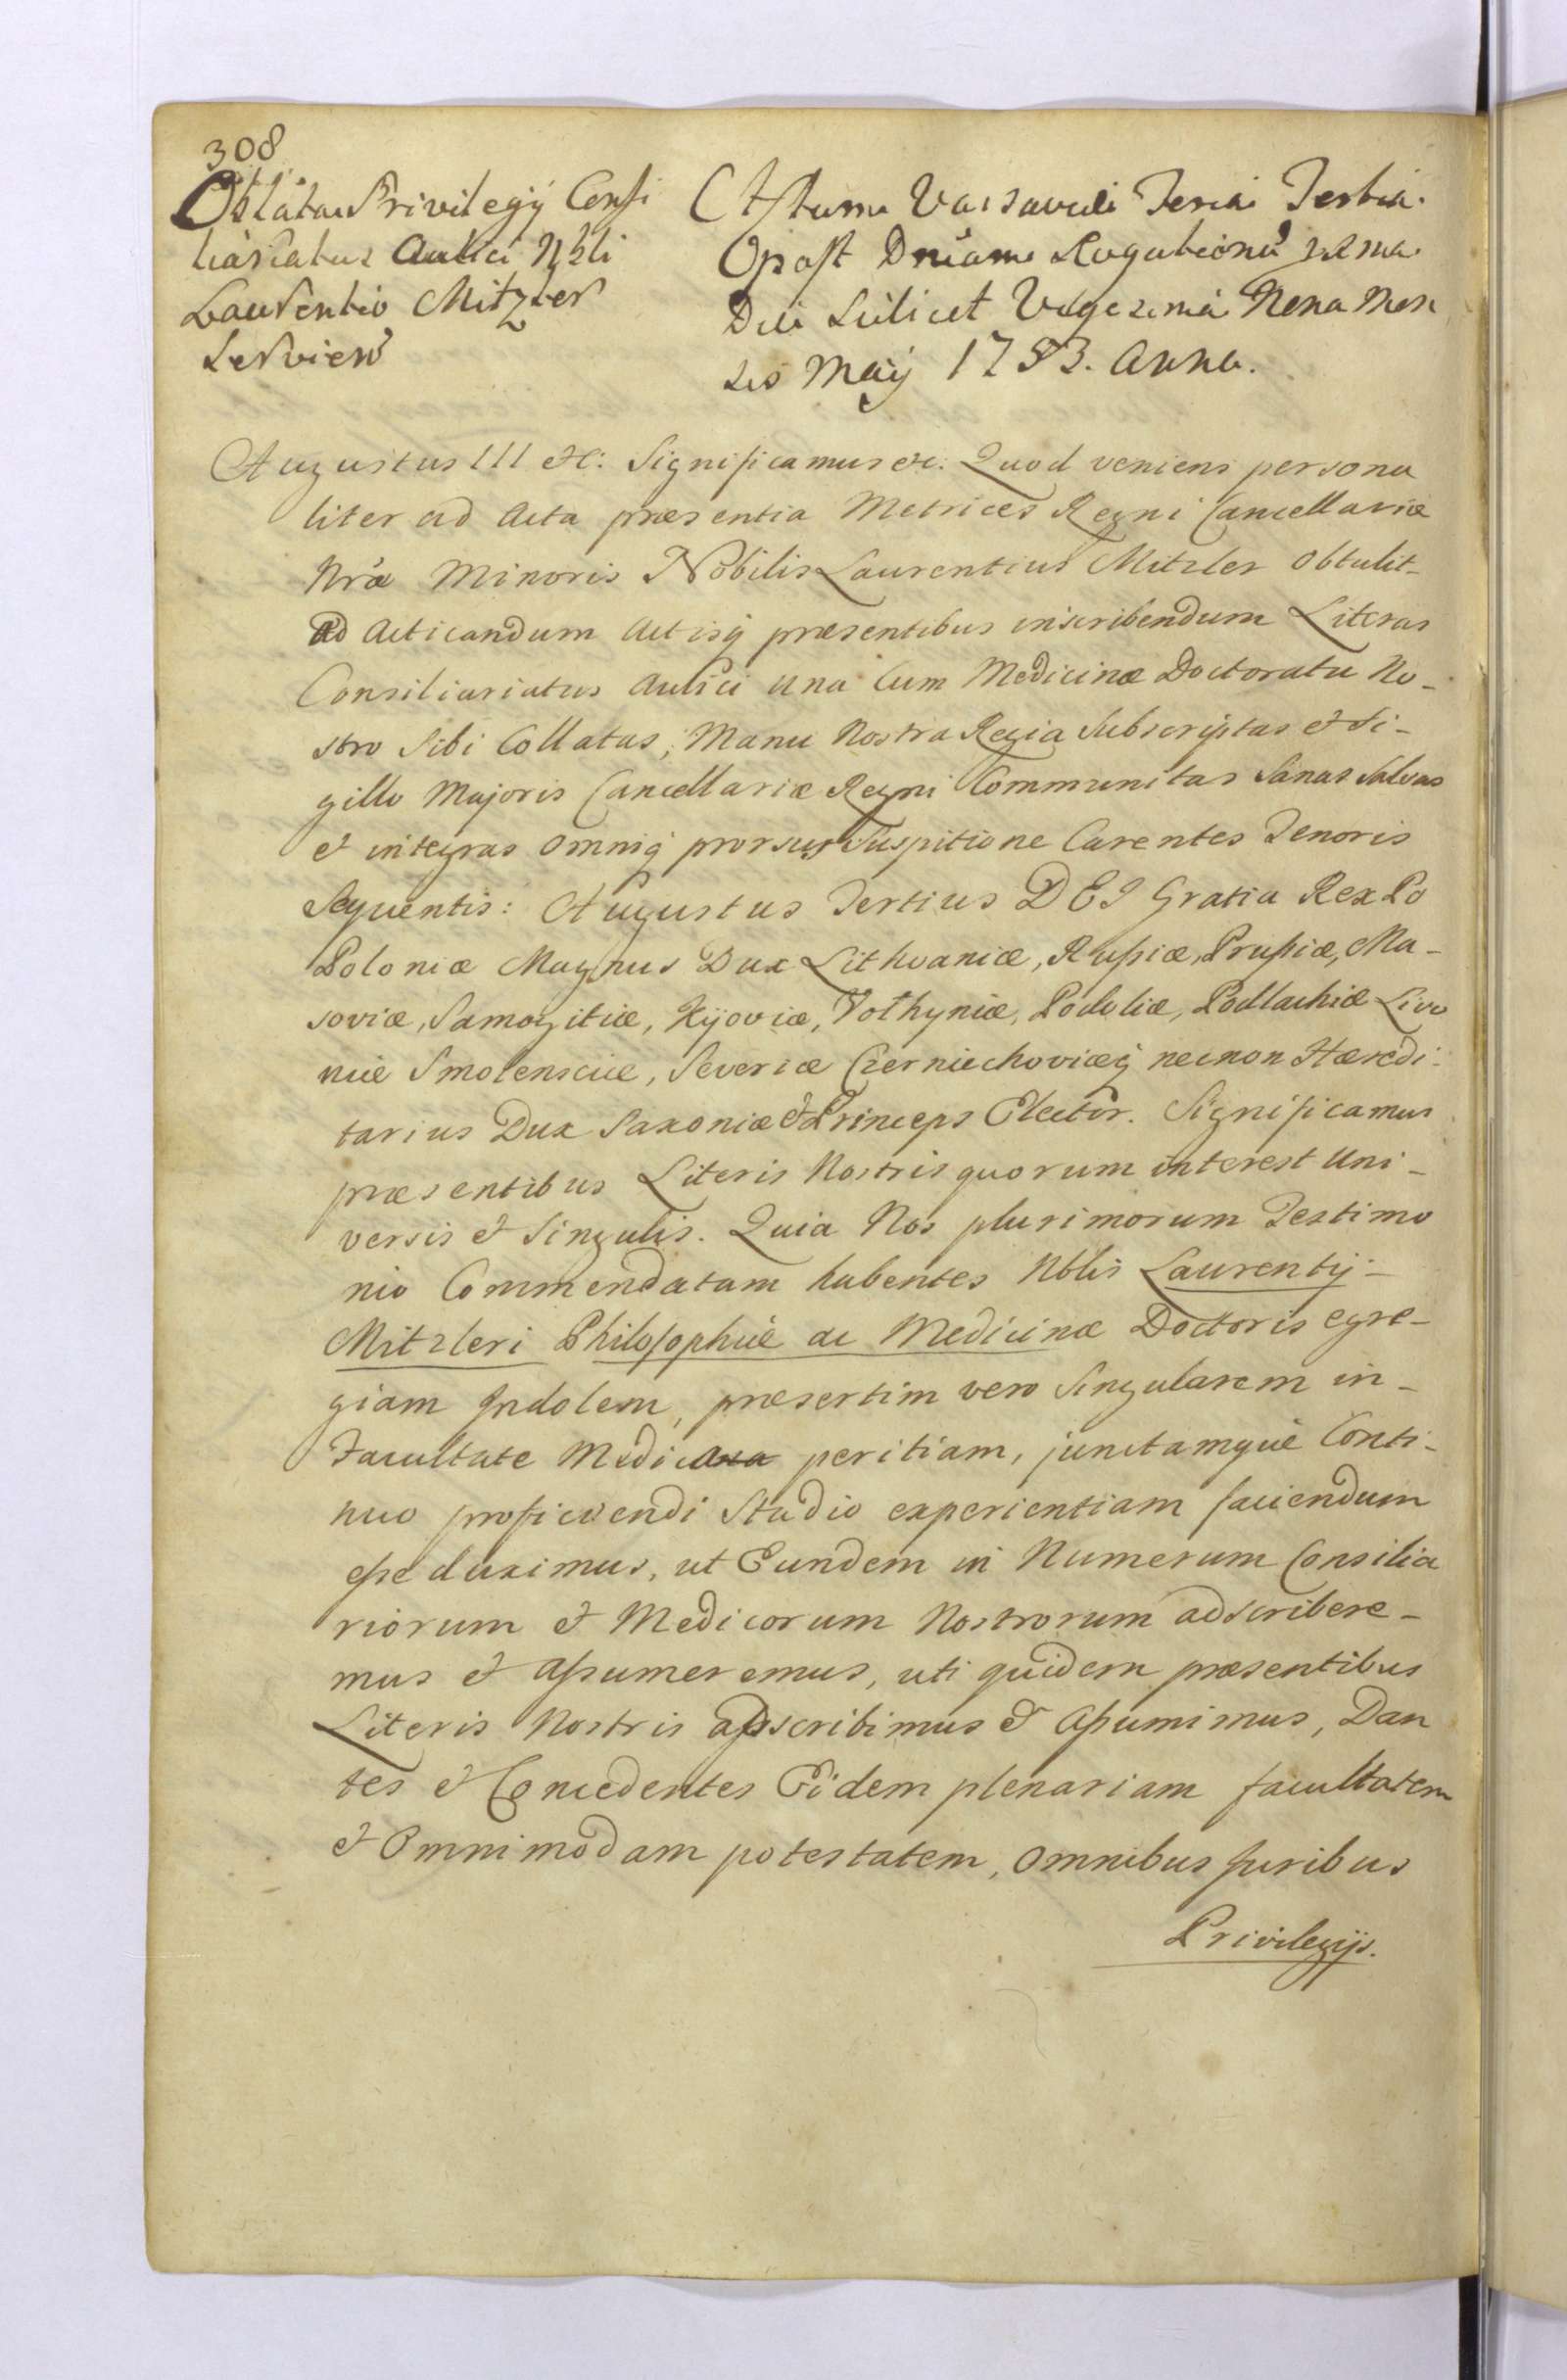 308
Oblata Privilegÿ Consi
liariatus Aulici Nbli
Laurentio Mitzler
servien
Actum Varsaviæ Feria Tertia
post Dnicam Rogationũ
Die Scilicet Vigesima Nona Men
sis Maÿ 1753. Anno.
Augustus III &c: Significamus &c. Quod veniens persona
liter ad Acta præsentia Metrices Regni Cancellariæ
Nræ Minoris Nobilis Laurentius Mitzler obtulit
ad Acticandum Actisq præsentibus inscribendum Literas
Consiliariatus Aulici una cum Medicinæ Doctoratu No-
stro Sibi Collatas, Manu Nostra Regia Subscriptas et Si-
gillo Majoris Cancellariæ Regni Communitas Sanas Salvas
et integras omniq prorsus Suspitione Carentes Tenoris
Sequentis: Augustus Tertius DEI Gratia Rex Po
Poloniæ Magnus Dux Lithvaniæ, Russiæ, Prussiæ, Ma-
soviæ, Samogitiæ, Kijoviæ, Volhyniæ, Podoliæ, Podlachiæ Livo
niæ Smolensciæ, Severiæ Czerniechoviæq necnon Hæredi:
tarius Dux Saxoniæ et Princeps Elector. Significamus
præsentibus Literis Nostris quorum interest Uni-
versis et Singulis. Quia Nos plurimorum Testimo
nio Commendatam habentes Nblis Laurentij-
Mitzleri Philosophiæ ac Medicinæ Doctoris egre-
giam Indolem, præsertim vero Singularem in-
Facultate Medica peritiam, junctamque Conti-
nuo proficiendi Studio experientiam faciendum
esse duximus, ut Eundem in Numerum Consilia
riorum et Medicorum Nostrorum adscribere-
mus et assumeremus, uti quidem præsentibus
Literis Nostris adscribimus et assumimus, Dan
tes et Concedentes Eidem plenariam facultatem
et Omnimodam potestatem, omnibus Juribus
Privilegijs.